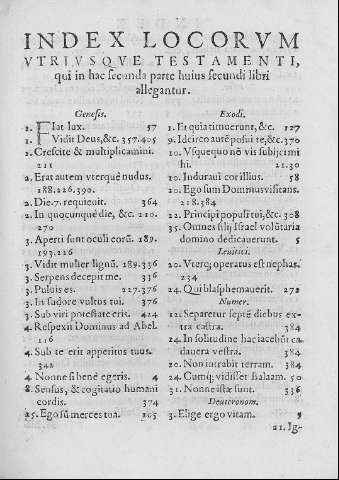 INDEX LOCORVM
VTRIVSQVE TESTAMENTI,
qui in hac secunda parte huius secundi libri
allegantur.
Genesis.
1. Fiat lux. 57
1. Vidit Deus, &c. 357.405
1. Crescite & multiplicamini.
211
2. Erat autem vterque nudus.
188.226.390.
2. Die.7. requieuit. 364
2. In quocunque die, &c. 210.
270
3. Aperti sunt oculi eorũ. 189.
193.226
3. Vidit mulier lignũ. 189.336
3. Serpens decepit me. 336
3. Puluis es. 227.376
3. In sudore vultus tui. 376
3. Sub viri potestate eris. 424
4. Respexit Dominus ad Abel.
116
4. Sub te erit apperitus tuus.
342
4. Nonne si bene egeris. 4
8. Sensus, & cogitatio humani
cordis. 374
25. Ego sũ merces tua. 205
Exodi.
1. Et quia timuerunt, &c. 127
9. Idcirco autẽ posui te, &c. 370
10. Vsquequo nõ vis subijci mi
hi. 21.30
10. Induraui cor illius. 58
20. Ego sum Dominus visitans.
218.384
22. Principi populi tui, &c. 308
35. Omnes filij Israel volũtaria
domino dedicauerunt. 5
Leuitici.
20. Vterq; operatus est nephas.
234
24. Qui blasphemauerit. 272
Numer.
12. Separetur septẽ diebus ex-
tra castra. 384
14. In solitudine hac iacebũt ca
dauera vestra. 384
20. Non intrabit terram. 384
24. Cumq; vidisset Balaam. 50
31. Nonne istæ sunt. 336
Deuteronom.
3. Elige ergo vitam. 9
21. Ig-